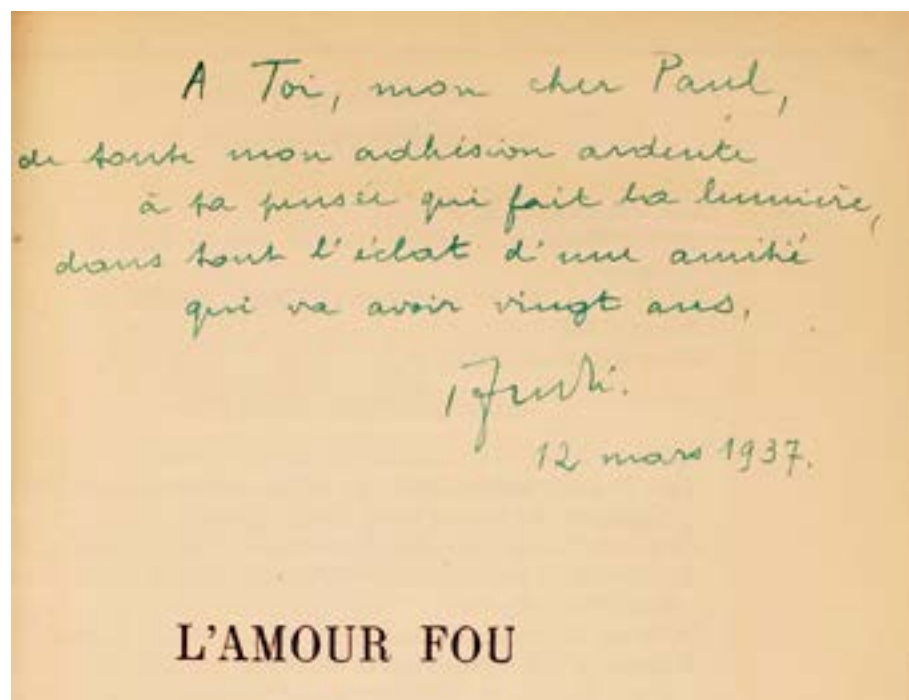 A Toi, mon cher Paul,
de toute mon adhésion ardente
à ta pensée qui fait la lumière,
dans tout l'éclat d'une amitié
qui va avoir vingt ans.
André.
12 mars 1937.
L'AMOUR FOU